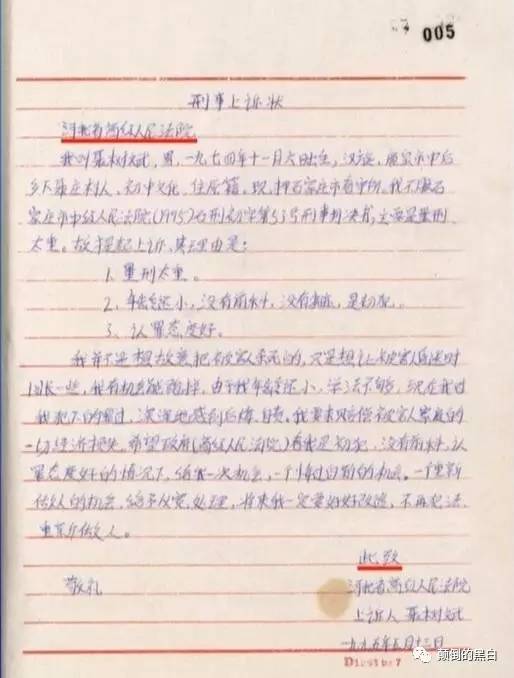 005
刑事上诉状
河北省高级人民法院
我叫聂树斌，男，一九七四年十一月六日出生，汉族，鹿泉市申后
乡下聂庄村人，初中文化，住原籍。现押石家庄市看守所。我不服石
家庄市中级人民法院(1995)石刑初字第53号刑事判决书，主要是量刑
太重。故提起上诉，其理由是：
1、量刑太重。
2、年龄还小，没有前科，没有劣迹，是初犯。
3、认罪态度好。
我并不是想故意把被害人杀死的，只是想让被害人昏迷时
间长一些，我有机会能跑掉，由于我年龄还小，学法不够，现在我对
我犯下的罪过，深深地感到后悔、自责。我要求赔偿被害人家庭的
一切经济损失。希望政府(高级人民法院)看我是初犯，没有前科，认
罪态度好的情况下，给我一次机会，一个悔过自新的机会。一个重新
做人的机会，给予从宽处理，将来我一定要好好改造，不再犯法，
重新做人。
此致
敬礼
河北省高级人民法院
上诉人 聂树斌
一九九五年五月十三日
颠倒的黑白